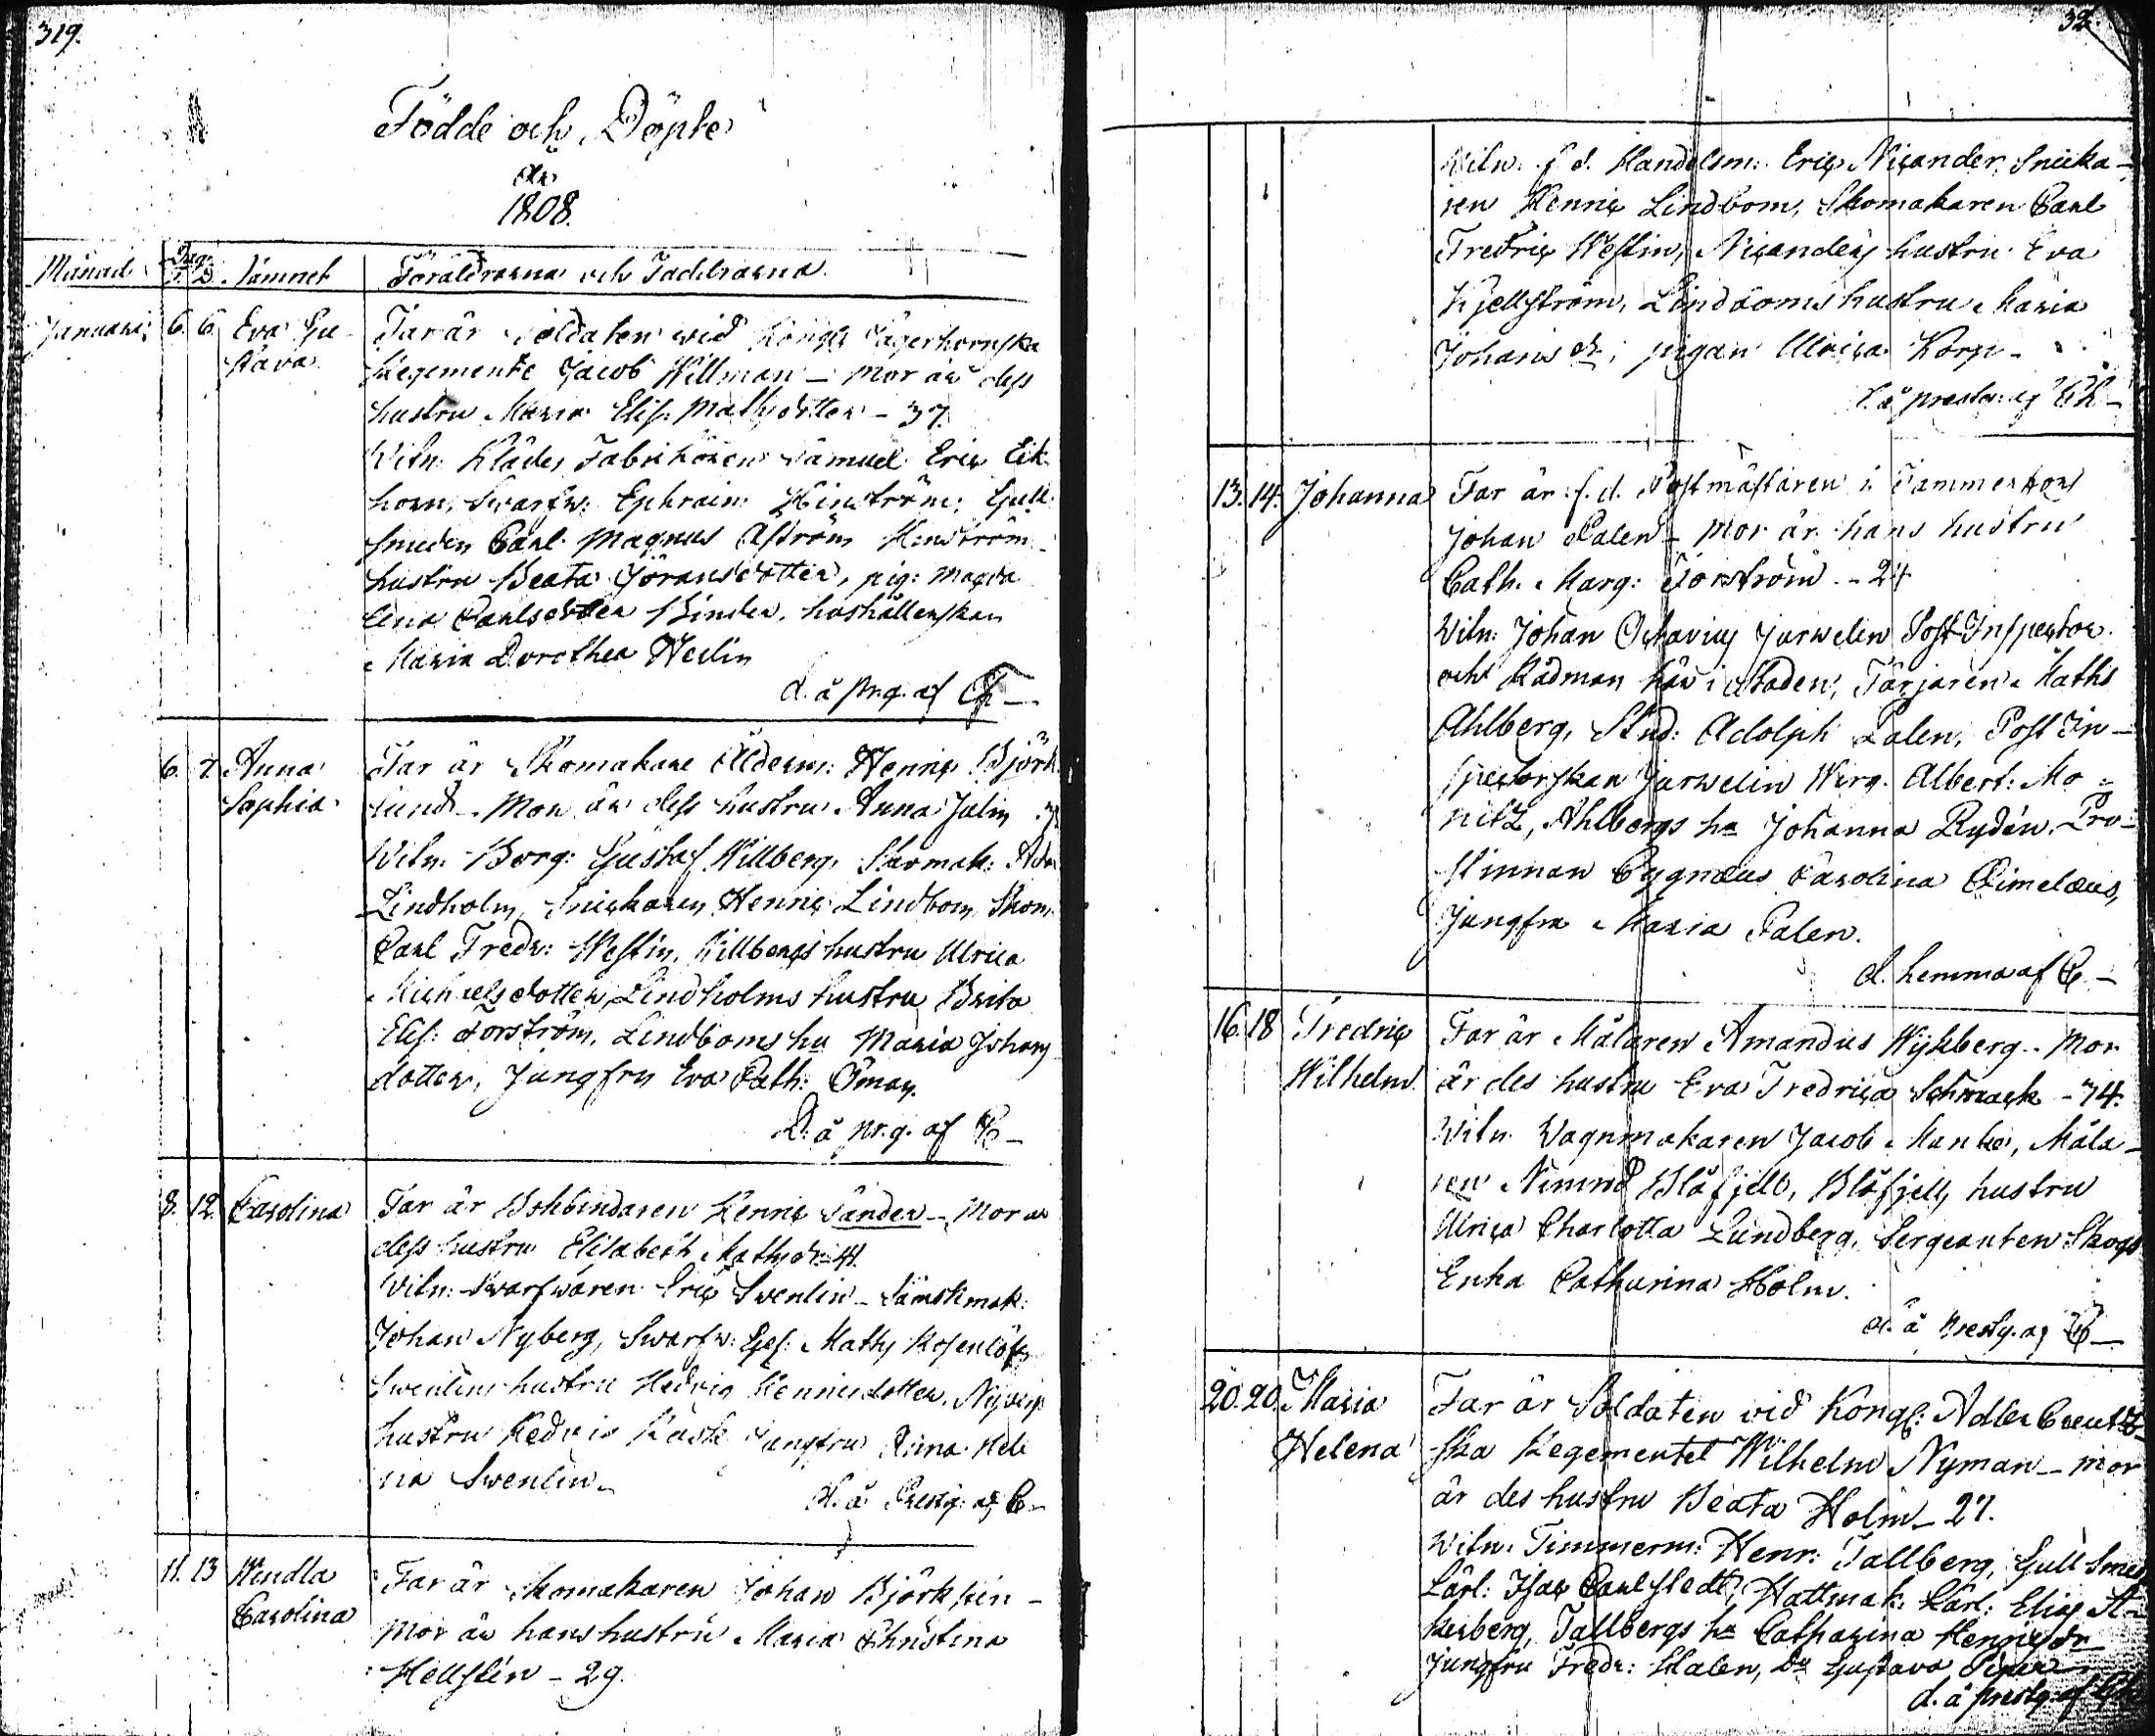 319.
Födde och Döpte
År
1808.
Månad Dag. F. D. Namnet Föräldrarna och Faddrarna
Januari 6. 6. Eva Gu
stava
Far är Soldaten wid Kongl. Jägerhornska
Regemente Jacob Willman – Mor är dess
hustru Maria Elis. Mathsdotter – 37.
Witn. Klädes Fabrikören Samuel Eric Ek
horn, Swarfw. Ephraim Hinström, Gull
smeden Carl Magnus Åström Hinström
hustru Beata Göransdotter, pig: Magda
lena Carlsdotter Binder, hushållerskan
Maria Dorothea Heslin
d. å prg. af
6. 7. Anna
Sophia
Far är Skomakare Ålderm: Henric Björk
lund – Mor är dess hustru Anna Julin
Witn. Borg: Gustaf Willberg, Skomak: Adm
Lindholm, Snickaren Henric Lindbom, Skom.
Carl Fredr: Westin, Willbergs hustru Ulrica
Michaelsdotter, Lindholms hustru Brita
Elis: Forström, Lindboms hu Maria Johans
dotter, Jungfru Eva Cath: Öman.
D. å pr.g. af C –
8. 12. Carolina
Far är Bokbindaren Henric Sander – Mor är
dess hustru Elisabeth Mathsdr 41.
Witn: Swarfwaren Eric Swenlin – Sämskmak:
Johan Nyberg, Swarfw: Ges: Maths Rosenlöf,
Swenlins hustru Hedvig Henricsdotter, Nybergs
hustru Hedvig Rask Jungfru Anna Hele
na Swenlin –
d. å Prestg. af C –
11. 13 Wendla
Carolina
Far är Skomakaren Johan Björkhin –
Mor är hans hustru Maria Christina
Hellstén – 29.
32
Witn: f. d. Handelsm: Eric Nicander, Snicka –
ren Henric Lindbom, Skomakaren Carl
Fredric Westin, Nicanders hustru Eva
Kjellström, Lindboms hustru Maria
Johans dr, pigan Ulrica Korp –
d. å prestg. af
13. 14. Johanna
Far är f. d. Postmästaren i Tammerfors
Johan Palen – Mor är hans hustru
Cath. Marg: Forström – 24
Witn: Johan Octavius Jurwelin Post Inspector
och Rådman här i Staden, Färjaren Maths
Ahlberg, Stud: Adolph Palen, Post In –
spectorskan Jurwelin Wirg. Albert: Mo –
nitz, Ahlbergs hu Johanna Rydén, Pro –
stinnan Cygnæus Carolina Aimelæus,
Jungfru Maria Palen.
d. hemma af C –
16. 18 Fredric
Wilhelm.
Far är Målaren Amandus Wykberg – Mor
är des hustru Eva Fredrica Schmack – 34.
Witn. Wagnmakaren Jacob Manke, Måla –
ren Nimrod Blåfjell, Blåfjells hustru
Ulrica Charlotta Lundberg, Sergeanten Skogs
Enka Catharina Holm.
d. å prestg. af C –
20. 20. Maria
Helena
Far är Soldaten vid Kongl: Adler Creutz –
ska Regementet Wilhelm Nyman – mor
är des hustru Beata Holm – 27.
Witn: Timmerm: Henr: Tallberg, Gull Smed
Lärl: Isac Carlstedt, Hattmak. Lärl: Elias Å –
kerberg, Tallbergs hu Catharina Henricsdr
Jungfru Fredr: Halen, Do Gustava
d. å prestg. af